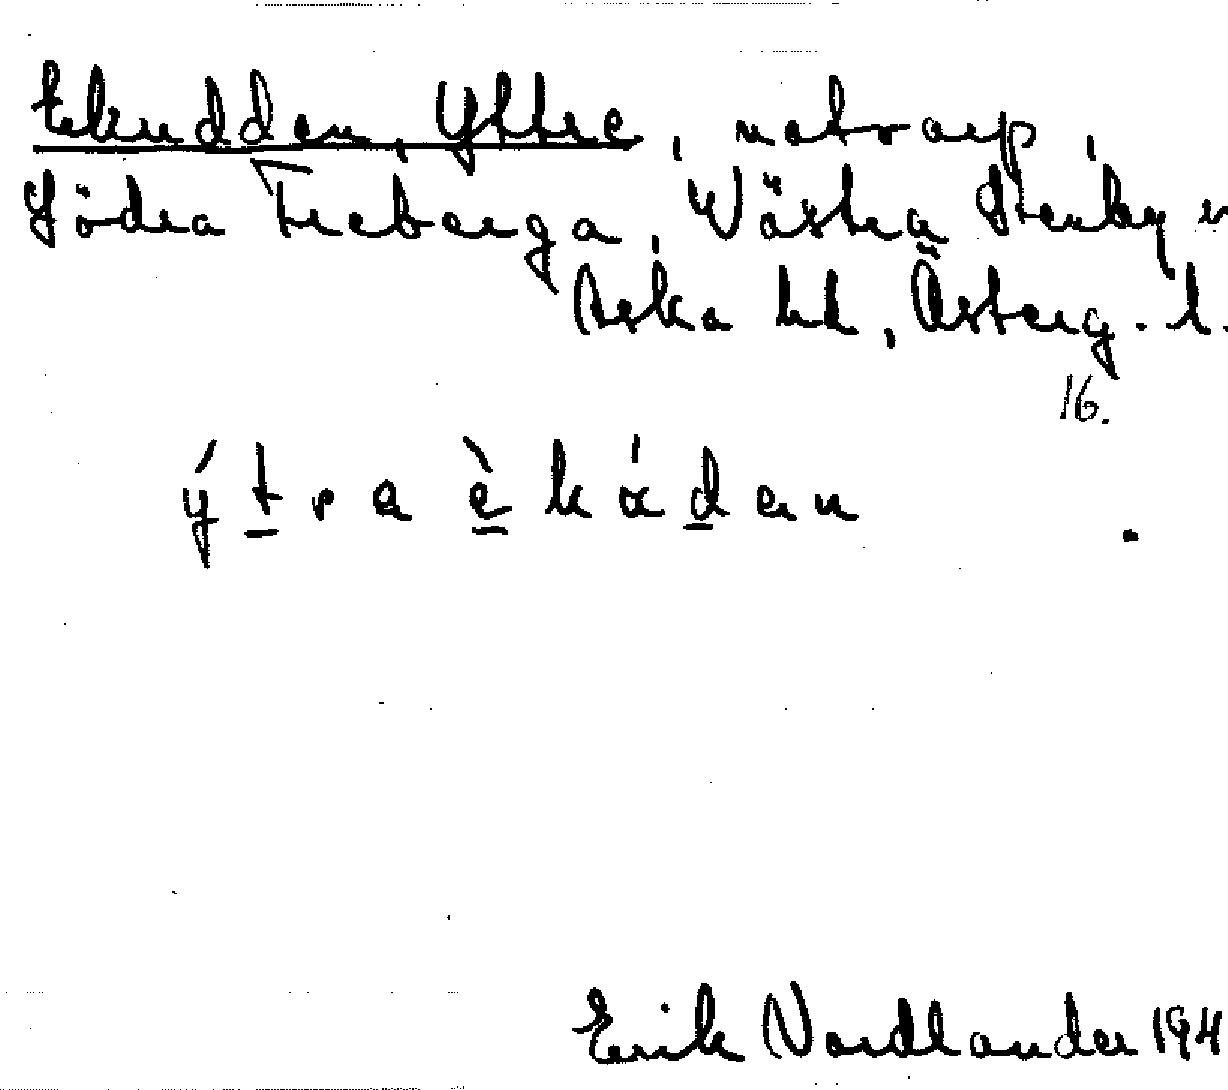 Ekudden, Yttre, notvarp,
Södra Freberga, Västra Stenby
Aska hd, Österg. l.
16.
ý t r a è k á d a n
Erik Nordlander 194